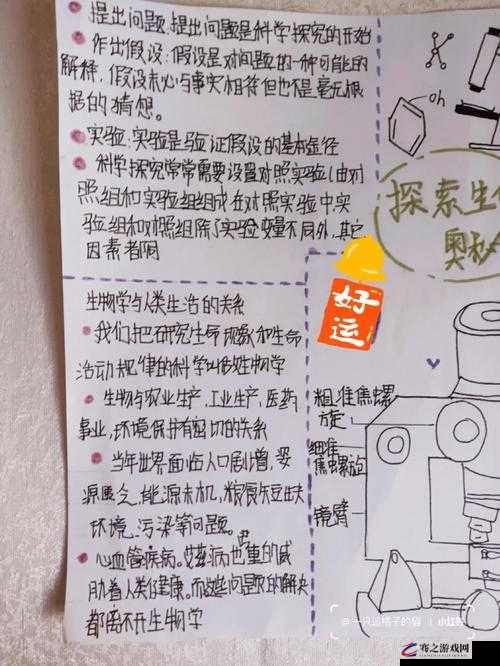 提出问题:提出问题是科学探究的开始
作出假设:假设是对问题的一种可能的
解释,假设未必与事实相符但也不是毫无根
据的猜想。
实验:实验是验证假设的基本途径
科学探究常常需要设置对照实验(由对
照组和实验组组成在对照实验中实
验组和对照组除了实验变量不同外,其它
因素都同
生物学与人类生活的关系
我们把研究生命现象和生命
活动规律的科学叫做生物学
生物与农业生产,工业生产,医药
事业,环境保护有密切的关系
当年世界面临人口剧增,资
源匮乏,能源危机,粮食
环境污染等问题。
心血管疾病。艾滋病也重的威
胁着人类健康。而这些问题的解决
都离不开生物学
OH
探索生
奥秘
好运
粗准焦螺
旋
细准
焦螺旋
镜臂
@一只逗格子的猫 小红书
骞之游戏网